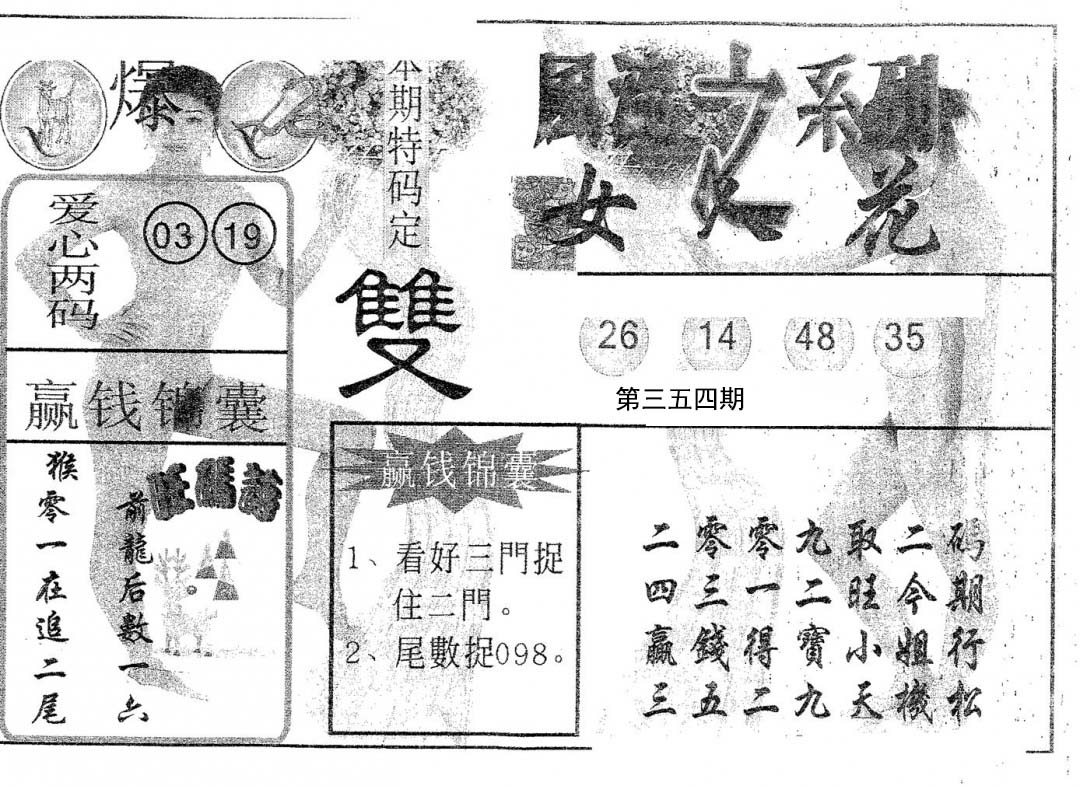 爆
本期特码定
雙
系列
女人花
爱心两码
03 19
26 14 48 35
第三五四期
赢钱锦囊
猴零一在追二尾
前龍后數一六
赢钱锦囊
1、看好三門捉
住二門。
2、尾數捉098。
码期行松
二今姐機
取旺小天
九二寶九
零一得二
零三錢五
二四贏三